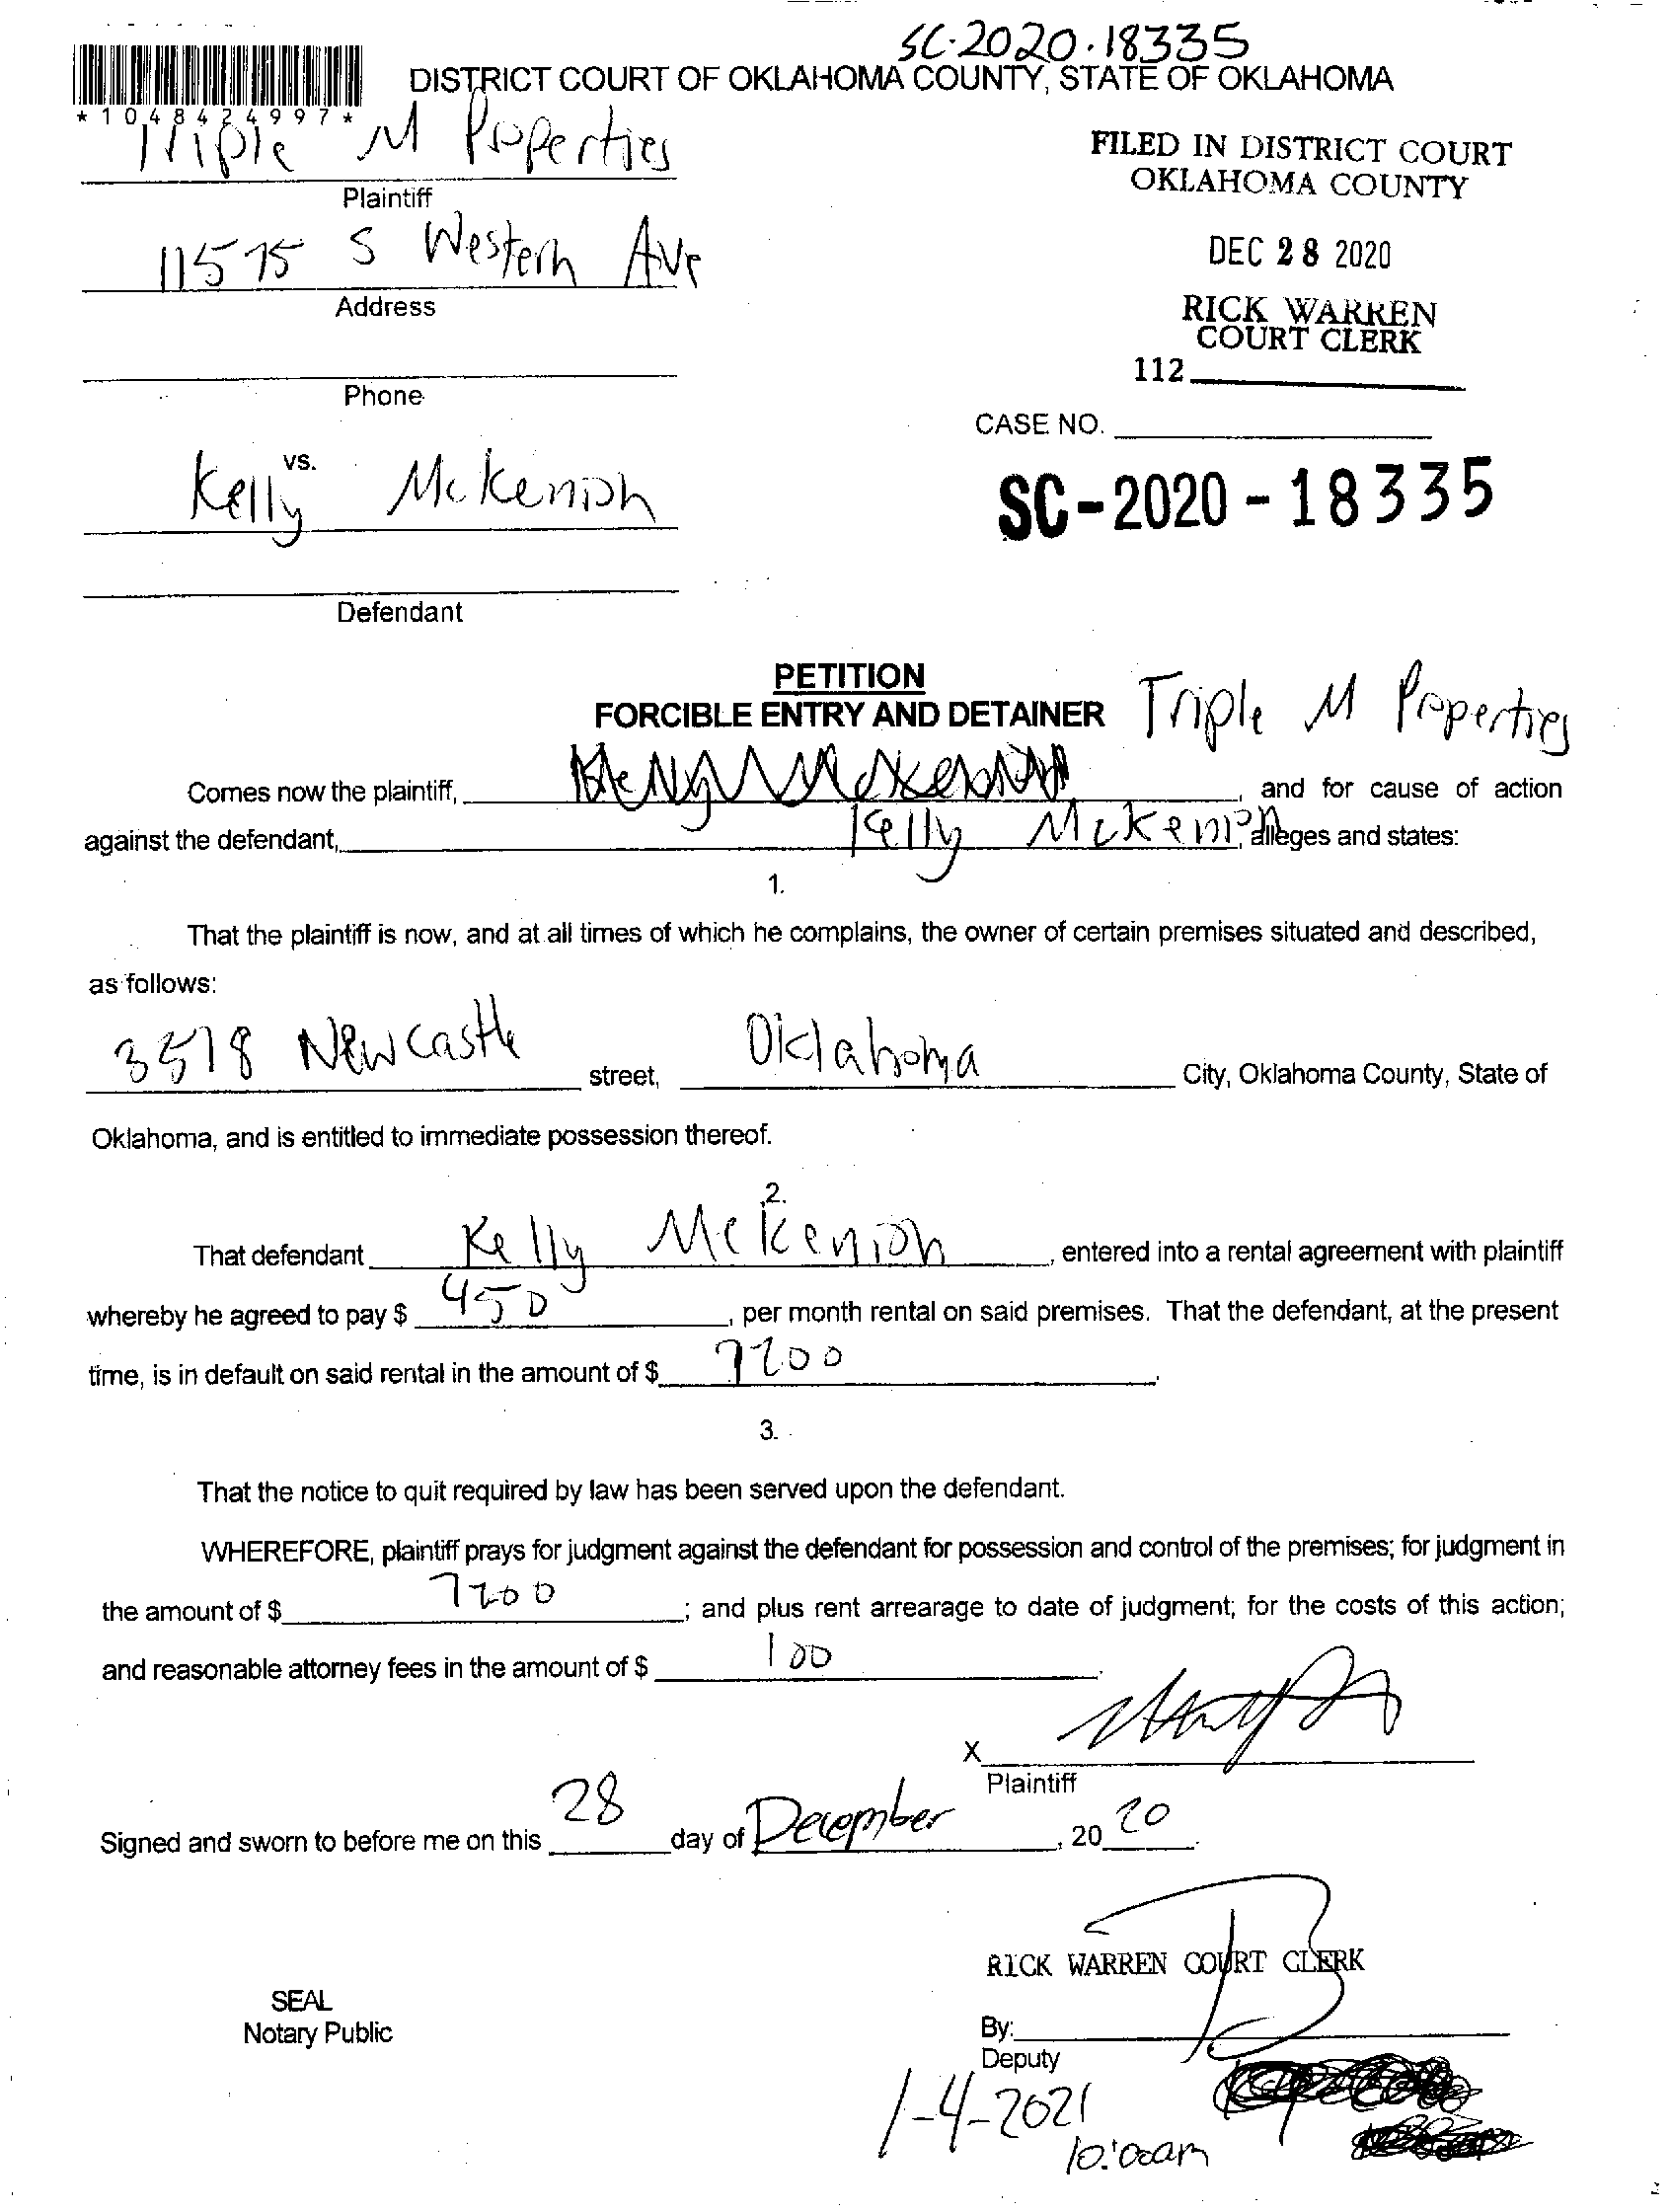 SC-2020-18335
DISTRICT COURT OF OKLAHOMA COUNTY, STATE OF OKLAHOMA
*1048424997*
Triple M Properties
Plaintiff
FILED IN DISTRICT COURT
OKLAHOMA COUNTY
11575 S Western Ave
Address
DEC 28 2020
RICK WARREN
COURT CLERK
112
Phone
CASE NO.
vs.
Kelly McKenion
SC-2020-18335
Defendant
PETITION
FORCIBLE ENTRY AND DETAINER
Triple M Properties
Comes now the plaintiff, , and for cause of action
against the defendant, Kelly McKenion, alleges and states:
1.
That the plaintiff is now, and at all times of which he complains, the owner of certain premises situated and described,
as follows:
3518 Newcastle street, Oklahoma City, Oklahoma County, State of
Oklahoma, and is entitled to immediate possession thereof.
2.
That defendant Kelly McKenion, entered into a rental agreement with plaintiff
whereby he agreed to pay $ 450, per month rental on said premises. That the defendant, at the present
time, is in default on said rental in the amount of $ 7200.
3.
That the notice to quit required by law has been served upon the defendant.
WHEREFORE, plaintiff prays for judgment against the defendant for possession and control of the premises; for judgment in
the amount of $ 7200; and plus rent arrearage to date of judgment; for the costs of this action;
and reasonable attorney fees in the amount of $ 100.
X
Plaintiff
Signed and sworn to before me on this 28 day of December, 2020.
RICK WARREN COURT CLERK
SEAL
Notary Public
By:
Deputy
1-4-2021
10:00am